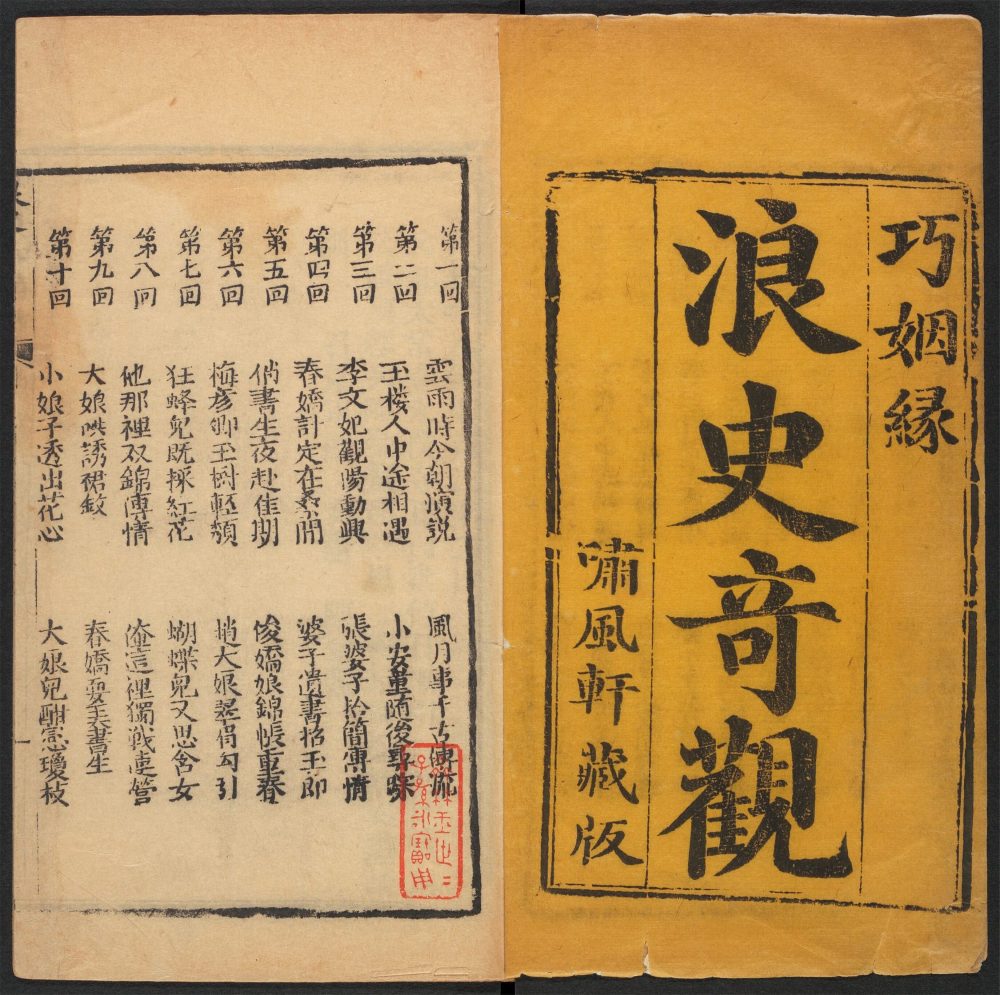 巧姻緣
浪史奇觀
嘯風軒藏版
第一回 雲雨時今朝演説 風月事千古傳流
第二回 玉樓人中途相遇 小安童随後尋踪
第三回 李文妃觀陽動興 張婆子拾簡傳情
第四回 春嬌計定在 婆子遺書招王郎
第五回 俏書生夜赴佳期 俊嬌娘錦帳重春
第六回 梅彦卿玉樹輕頽 趙大娘 勾引
第七回 狂蜂兒既採紅花 蝴蝶兒又思含女
第八回 他那裡双錦傳情 俺這裡獨戦連營
第九回 大娘哄誘裙釵 春嬌 書生
第十回 小娘子透出花心 大娘兒酣 瓊枝